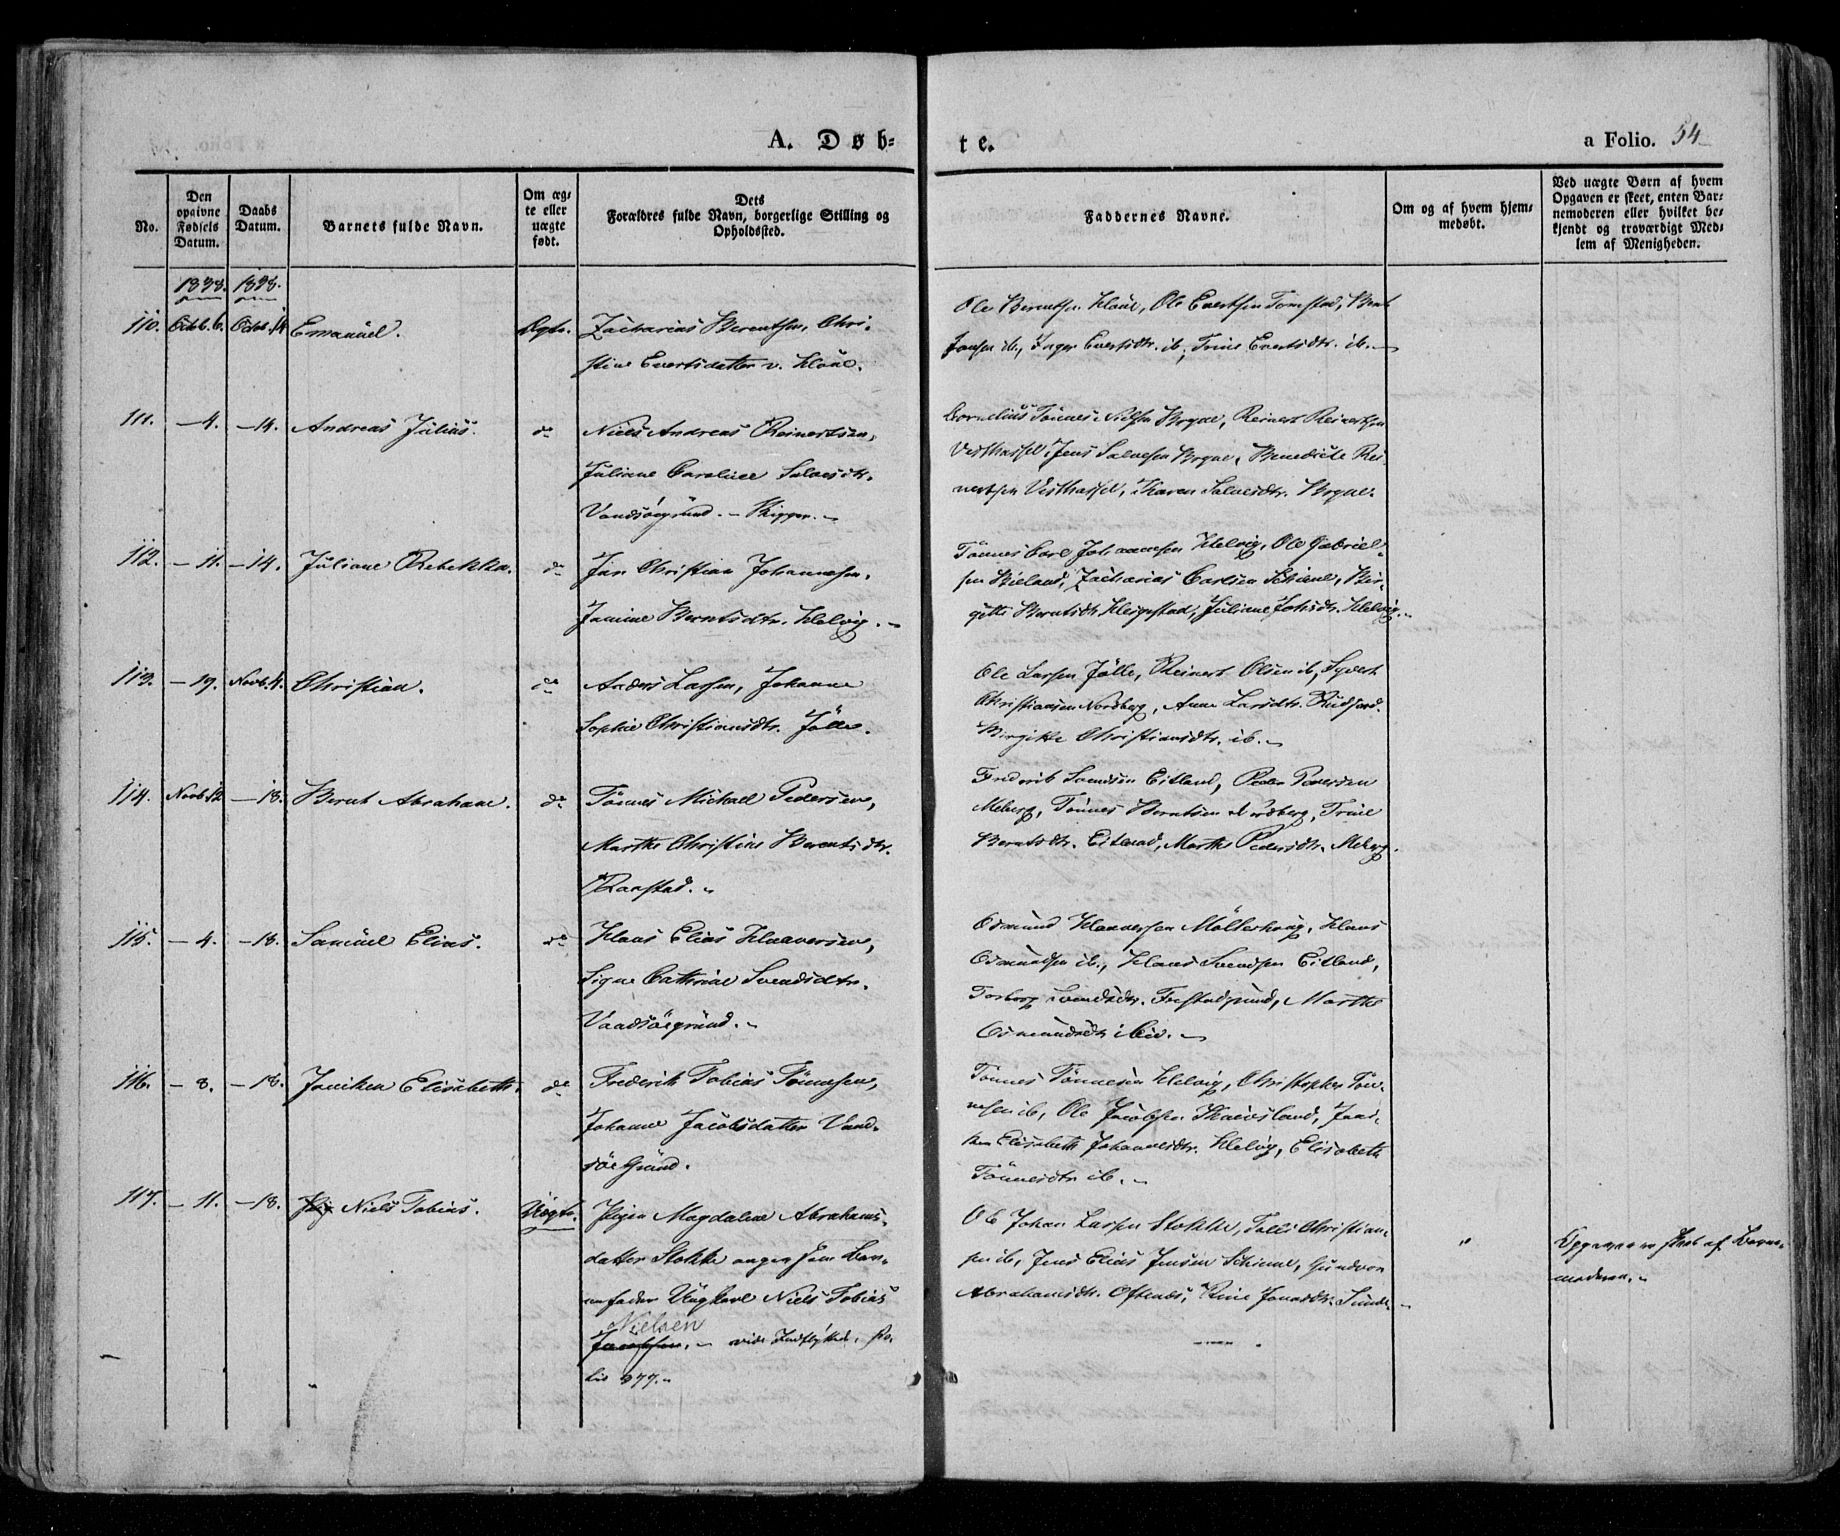 A. Døb-
te.
a Folio. 54
No.
Den opgivne Fødsels Datum.
Daabs Datum.
Barnets fulde Navn.
Om ægte eller uægte født.
Dets Forældres fulde Navn, borgerlige Stilling og Opholdssted.
Faddernes Navne.
Om og af hvem hjemmedøbt.
Ved uægte Børn af hvem Opgaven er skeet, enten Barnemoderen eller hvilket bekjendt og troværdigt Medlem af Menigheden.
1838. 1838.
110. Octb. 6. Octb. 14. Emanuel. Ægte. Zacharias Berentsen, Chri-
stine Evertsdatter v. Kloul.
Ole Berentsen Kloul, Ole Evertsen Tomstad, Bent
Jansen ib., Inger Evertsdtr. ib., Trine Evertsdtr. ib.
111. – 4. – 14. Andreas Julius. do Niels Andreas Reinertsen,
Juliane Caroline Salvesdtr.
Vandsøegrund. – Skipper.
Cornelius Tønnes Nilsen Bryne, Reinert Reinertsen
Vesthassel, Jens Salvesen Bryne, Benedicte Rei-
nertsen Vesthassel, Karen Salvesdtr. Bryne.
112. – 11. – 14. Juliane Rebekka. do Jan Christian Johannesen,
Janine Berntsdtr. Helvig.
Tønnes Carl Johannesen Helvig, Ole Gabriel-
sen Bieland, Zacharias Carlsen Schiene, Bir-
gitte Berntsdtr. Heigrestad, Juliane Johsdtr. Helvig.
113. – 19. Novb. 4. Christian. do Anders Larsen, Johanne
Sophie Christiansdtr. Jølle.
Ole Larsen Jølle, Reinert Olsen ib., Syvert
Christiansen Nordberg, Anne Larsdtr. Rudjord.
Birgitte Christiansdtr. ib.
114. Novb. 12. – 18. Bernt Abraham. do Tønnes Michael Pedersen,
Marthe Christine Berentsdtr.
Ranestad.
Frederik Svendsen Eitland, Peder Pedersen
Meberg, Tønnes Berntsen Nordberg, Trine
Berntsdtr. Eitland, Marthe Pedersdtr. Meberg.
115. – 4. – 18. Samuel Elias. do Hans Elias Haaversen,
Signe Cathrine Svendsdtr.
Vandsøegrund.
Osmund Haaversen Møllerhoug, Hans
Osmundsen ib., Hans Svendsen Eitland,
Torborg Svendsdtr. Marthe
Osmundsdtr. ibid.
116. – 8. – 18. Janiken Elisabeth. do Frederik Tobias Tønnesen,
Johanne Jacobsdatter Vand-
søe Grund.
Tønnes Tønnesen Helvig, Christopher Tøn-
nesen ib., Ole Jacobsen Skeivsland, Jani-
ken Elisabeth Johannesdtr. Helvig, Elisabeth
Tønnesdtr. ib.
117. – 11. – 18. Niels Tobias. Uægte. Pigen Magdalene Abrahams-
datter Stokke angav som Bar-
nefader Ungkarl Niels Tobias
Nielsen
vide Indflyttede, Fo-
lio 377.
Ole Johan Larsen Stokke, Tolle Christian-
sen ib., Jens Elias Jensen Schiene, Gundvor
Abrahamsdtr. Oftenes, Rine Jonasdtr. Sunde.
"
Opgaven er skeet af Barne-
moderen.